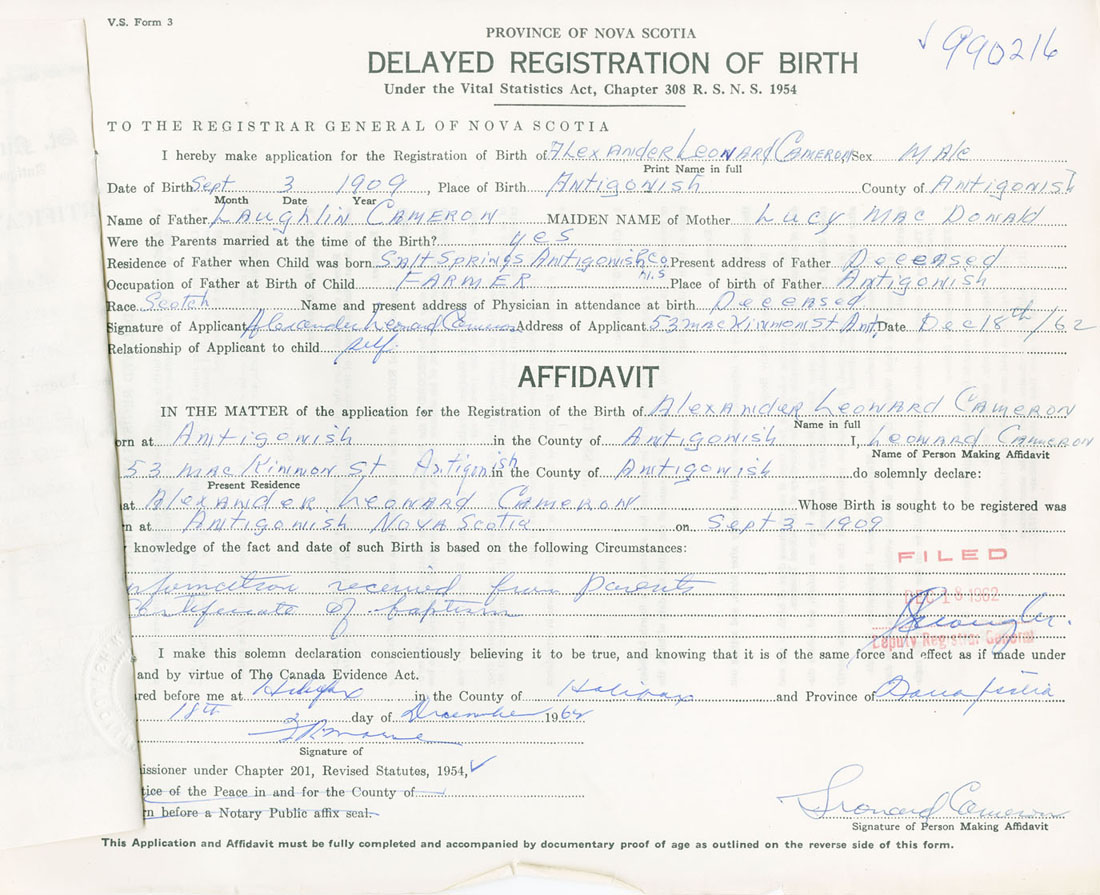 V.S. Form 3
990216
PROVINCE OF NOVA SCOTIA
DELAYED REGISTRATION OF BIRTH
Under the Vital Statistics Act, Chapter 308 R. S. N. S. 1954
TO THE REGISTRAR GENERAL OF NOVA SCOTIA
I hereby make application for the Registration of Birth of Alexander Leonard Cameron Sex Male
Print Name in full
Date of Birth Sept 3 1909, Place of Birth Antigonish County of Antigonish
Month Date Year
Name of Father Laughlin Cameron MAIDEN NAME of Mother Lucy Mac Donald
Were the Parents married at the time of the Birth? yes
Residence of Father when Child was born Salt Springs Antigonish Co N.S Present address of Father Deceased
Occupation of Father at Birth of Child FARMER Place of birth of Father Antigonish
Race Scotch Name and present address of Physician in attendance at birth Deceased
Signature of Applicant Alexander Leonard Cameron Address of Applicant 53 Mac Kinnon St Ant, Date Dec 18th/62
Relationship of Applicant to child self.
AFFIDAVIT
IN THE MATTER of the application for the Registration of the Birth of Alexander Leonard Cameron
Name in full
orn at Antigonish in the County of Antigonish I, Leonard Cameron
Name of Person Making Affidavit
53 Mac Kinnon St Antigonish in the County of Antigonish do solemnly declare:
Present Residence
at Alexander Leonard Cameron Whose Birth is sought to be registered was
n at Antigonish Nova Scotia on Sept 3 - 1909
knowledge of the fact and date of such Birth is based on the following Circumstances:
FILED
nformation received from parents
DEC 18 1962
ertificate of baptism
Deputy Registrar General
I make this solemn declaration conscientiously believing it to be true, and knowing that it is of the same force and effect as if made under
and by virtue of The Canada Evidence Act.
red before me at Halifax in the County of Halifax and Province of Nova Scotia
18th day of December 1962
Signature of
issioner under Chapter 201, Revised Statutes, 1954,
tice of the Peace in and for the County of
n before a Notary Public affix seal.
Leonard Cameron
Signature of Person Making Affidavit
This Application and Affidavit must be fully completed and accompanied by documentary proof of age as outlined on the reverse side of this form.